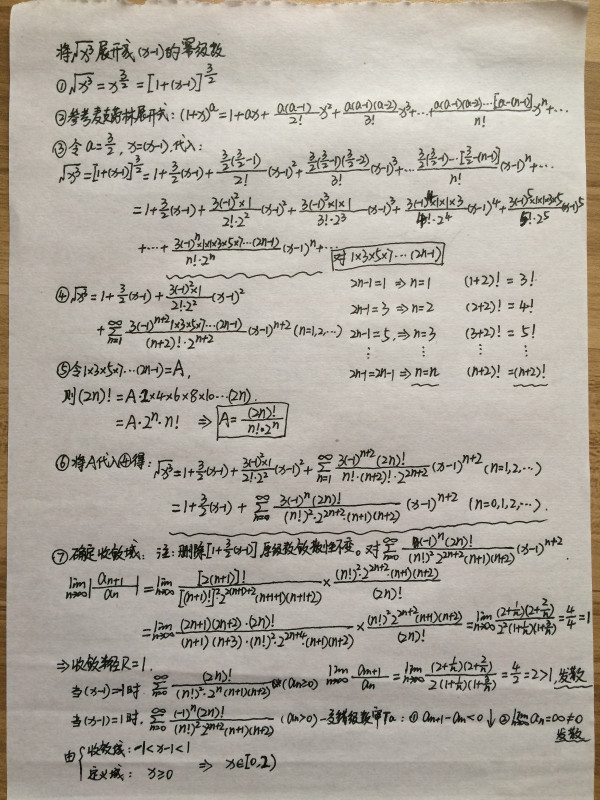 将√x³展开成(x-1)的幂级数
①√x³ = x^(3/2) = [1+(x-1)]^(3/2)
②参考麦克劳林展开式: (1+x)^a = 1+ax+ a(a-1)/2! x²+ a(a-1)(a-2)/3! x³+…+ a(a-1)(a-2)…[a-(n-1)]/n! x^n+…
③令a=3/2, x=(x-1).代入:
√x³=[1+(x-1)]^(3/2)=1+3/2(x-1)+ 3/2(3/2-1)/2! (x-1)²+ 3/2(3/2-1)(3/2-2)/3! (x-1)³+… 3/2(3/2-1)…[3/2-(n-1)]/n! (x-1)^n+…
=1+3/2(x-1)+ 3(-1)²×1/2!·2² (x-1)²+ 3(-1)³×1×1/3!·2³ (x-1)³+ 3(-1)⁴×1×1×3/4!·2⁴ (x-1)⁴+ 3(-1)⁵×1×1×3×5/5!·2⁵ (x-1)⁵
+…+ 3(-1)^n×1×1×3×5×7…(2n-1)/n!·2^n (x-1)^n+… 对1×3×5×7…(2n-1)
④√x³=1+3/2(x-1)+ 3(-1)²×1/2!·2² (x-1)² 2n-1=1 ⇒ n=1 (1+2)! = 3!
2n-1=3 ⇒ n=2 (2+2)! = 4!
+ ∑(n=1,∞) 3(-1)^(n+2) 1×3×5×7…(2n-1)/(n+2)!·2^(n+2) (x-1)^(n+2) (n=1,2,…) 2n-1=5, ⇒ n=3 (3+2)! = 5!
⋮ ⋮ ⋮ ⋮
⑤令1×3×5×7…(2n-1)=A, 2n-1=2n-1 ⇒ n=n (n+2)! =(n+2)!
则(2n)! = A·2×4×6×8×10…(2n).
= A·2^n·n! ⇒ A= (2n)!/n!·2^n
⑥将A代入④得: √x³=1+3/2(x-1)+ 3(-1)²×1/2!·2² (x-1)²+ ∑(n=1,∞) 3(-1)^(n+2) (2n)!/n!·(n+2)!·2^(2n+2) (x-1)^(n+2) (n=1,2,…)
=1+3/2(x-1)+ ∑(n=0,∞) 3(-1)^n(2n)!/(n!)²·2^(2n+2)(n+1)(n+2) (x-1)^(n+2) (n=0,1,2,…).
⑦确定收敛域: 注:删除[1+3/2(x-1)]原级数敛散性不变。对∑(n=0,∞) 3(-1)^n(2n)!/(n!)²2^(2n+2)(n+1)(n+2) (x-1)^(n+2).
lim(n→∞)|a_(n+1)/a_n| = lim(n→∞) [2(n+1)]!/[(n+1)!]²2^(2(n+1)+2)(n+1+1)(n+1+2) × (n!)²·2^(2n+2)·(n+1)(n+2)/(2n)!
= lim(n→∞) (2n+1)(2n+2)·(2n)!/(n+1)(n+3)·(n!)²·2^(2n+4)·(n+1)(n+2) × (n!)²2^(2n+2)(n+1)(n+2)/(2n)! = lim(n→∞) (2+1/n)(2+2/n)/2²(1+1/n)(1+3/n) = 4/4 = 1
⇒收敛半径R=1.
当(x-1)=1时 ∑(n=0,∞) (2n)!/(n!)²·2^n(n+1)(n+2) (a_n≥0) lim(n→∞) a_(n+1)/a_n = lim(n→∞) (2+1/n)(2+2/n)/2(1+1/n)(1+3/n) = 4/2 = 2>1, 发散
当(x-1)=1时, ∑(n=0,∞) (-1)^n(2n)!/(n!)²2^(2n+2)(n+1)(n+2) (a_n>0)-交错级数审敛: ① a_(n+1)-a_n<0↓ ②lim a_n=∞≠0
发散
由{收敛域: -1<x-1<1
定义域: x≥0 ⇒ x∈[0,2)